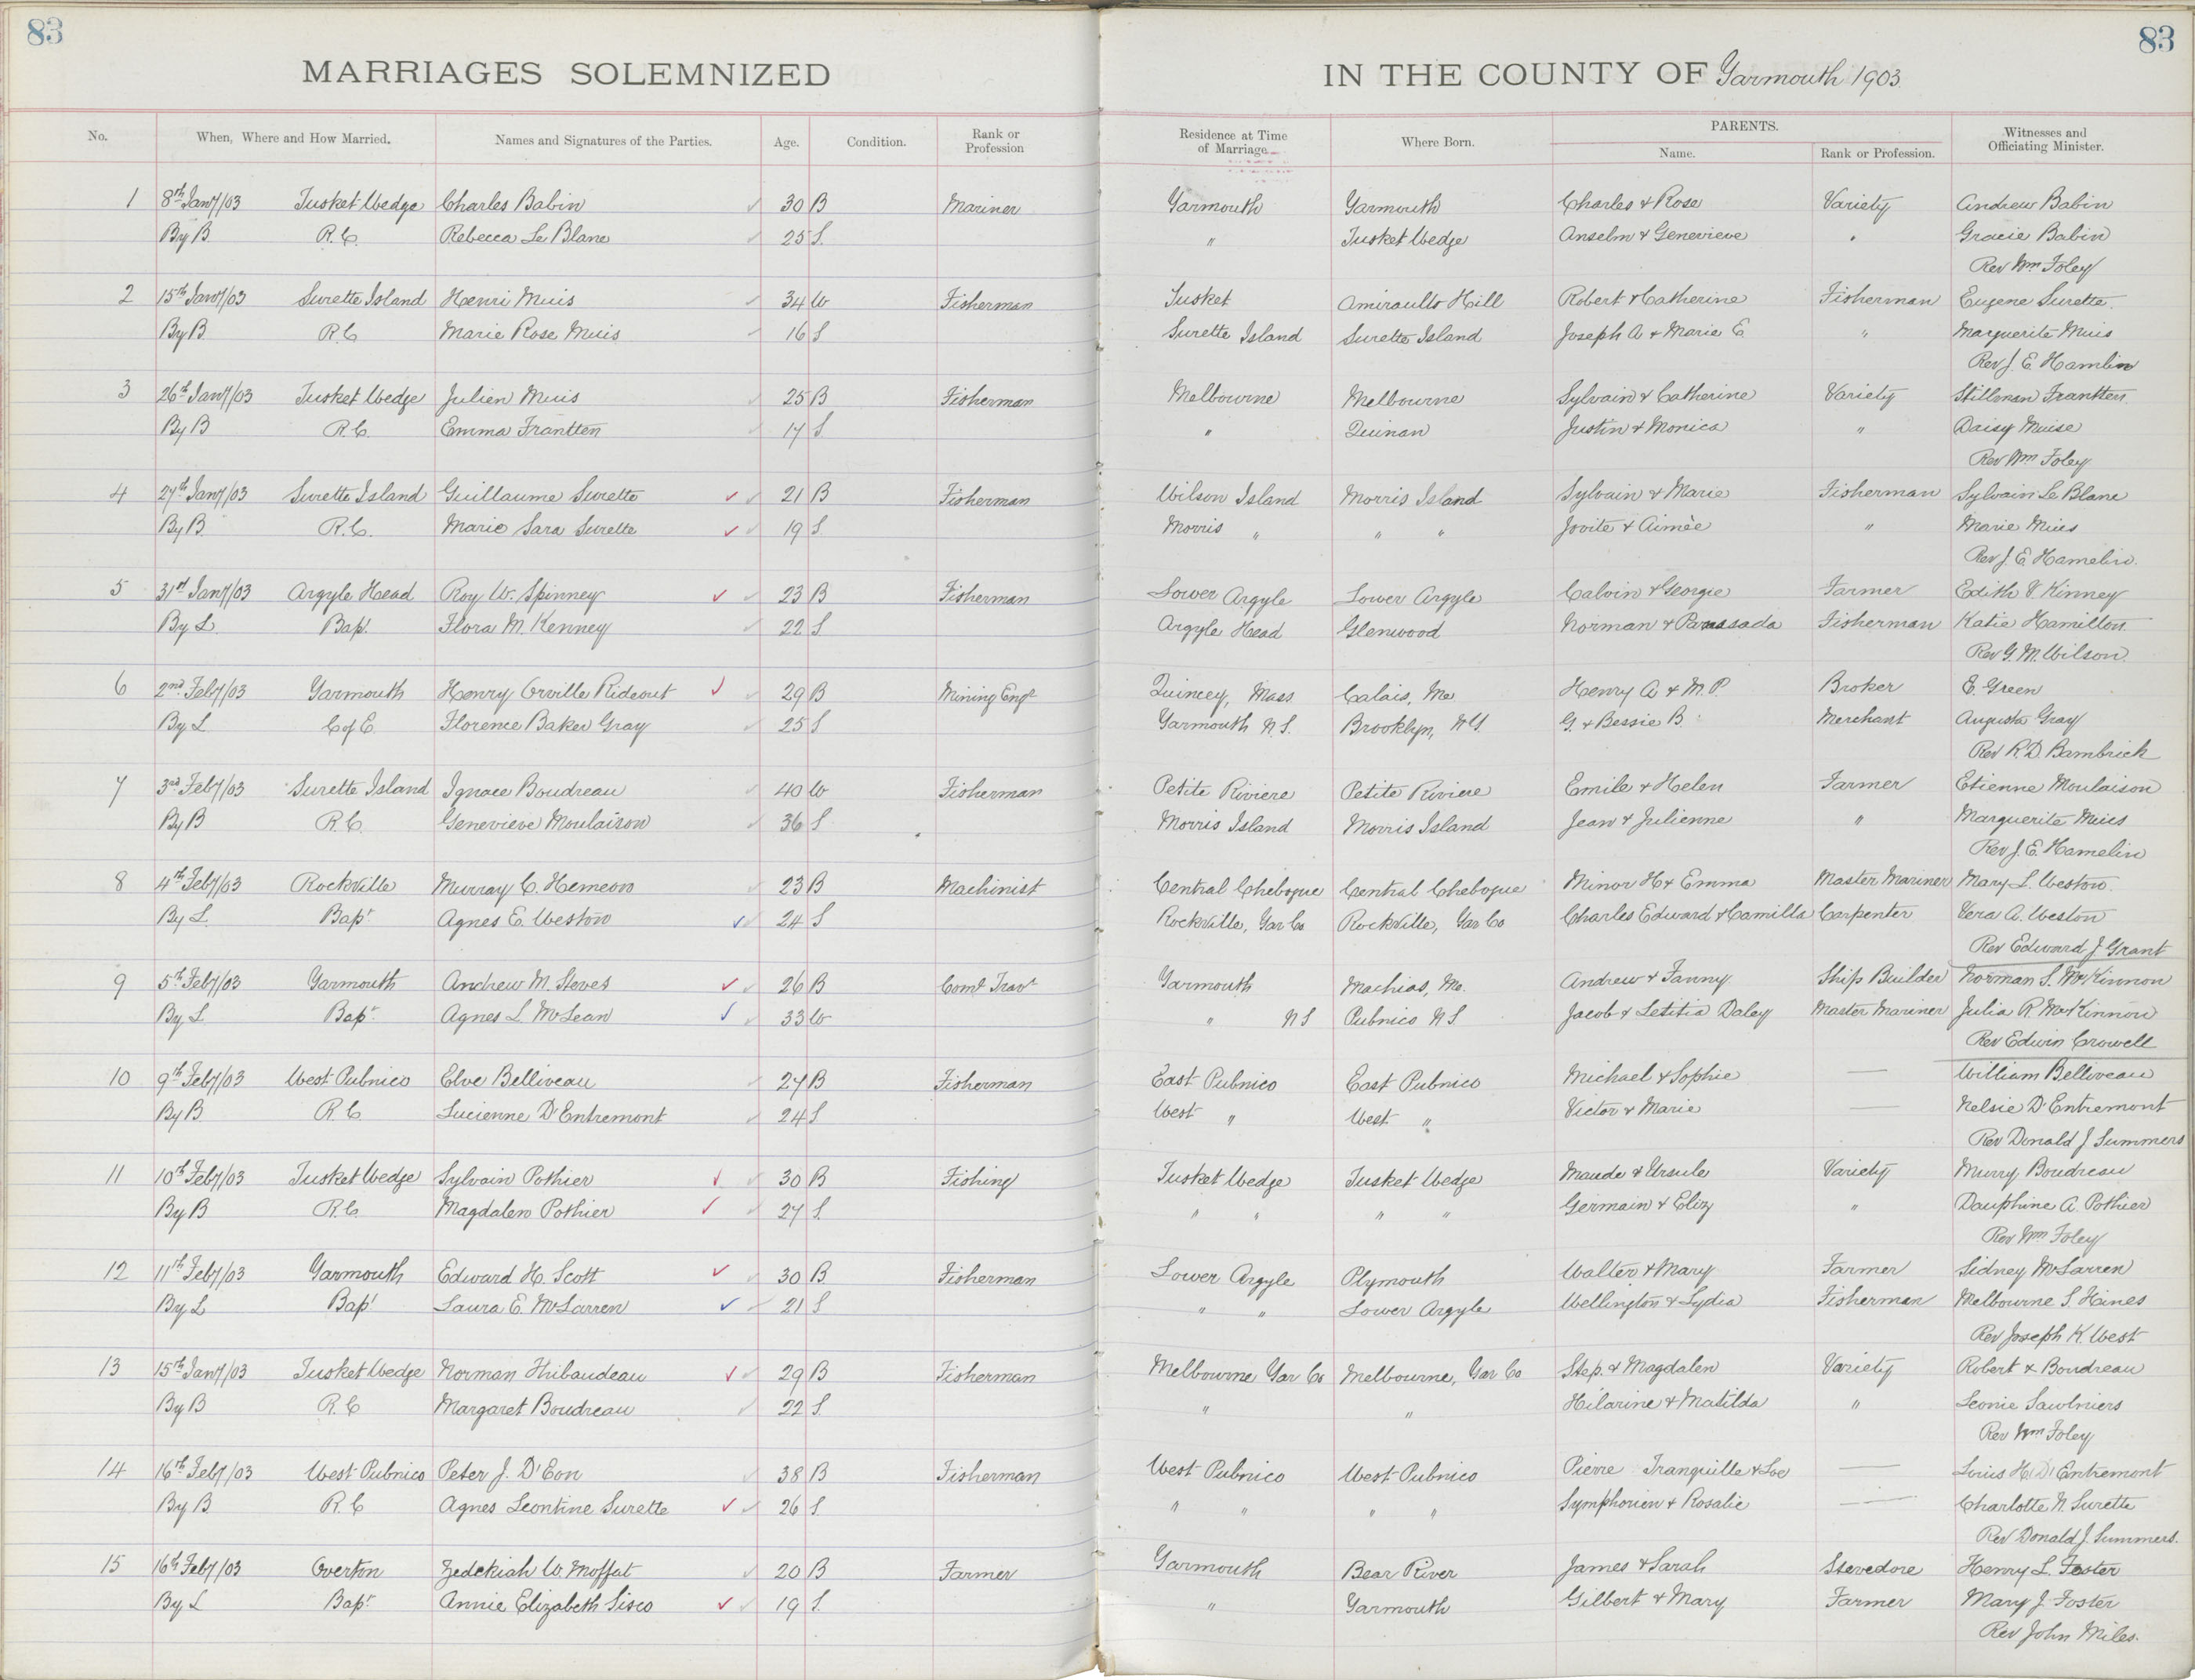 83 83
MARRIAGES SOLEMNIZED IN THE COUNTY OF Yarmouth 1903.
No. When, Where and How Married. Names and Signatures of the Parties. Age. Condition. Rank or Profession Residence at Time of Marriage. Where Born. PARENTS. Name. Rank or Profession. Witnesses and Officiating Minister.
1 8th Jany/03 Tusket Wedge Charles Babin 30 B Mariner Yarmouth Yarmouth Charles & Rose Variety Andrew Babin
By B R.C. Rebecca Le Blanc 25 S. " Tusket Wedge Anselm & Genevieve " Gracie Babin
Rev Wm Foley
2 15th Jany/03 Surette Island Henri Muis 34 W Fisherman Tusket Amiraults Hill Robert & Catherine Fisherman Eugene Surette.
By B R.C Marie Rose Muis 16 S Surette Island Surette Island Joseph A & Marie E " Marguerite Muis
Rev J. E. Hamlin
3 26th Jany/03 Tusket Wedge Julien Muis 25 B Fisherman Melbourne Melbourne Sylvain & Catherine Variety Stillman Frantten.
By B R.C. Emma Frantten 17 S " Quinan Justin & Monica " Daisy Muise
Rev Wm Foley
4 27th Jany/03 Surette Island Guillaume Surette 21 B Fisherman Wilson Island Morris Island Sylvain & Marie Fisherman Sylvain Le Blanc
By B R.C. Marie Sara Surette 19 S Morris " " " Jovite & Aimèe " Marie Muis
Rev J. E Hamelin.
5 31st Jany/03 Argyle Head Roy W. Spinney 23 B Fisherman Lower Argyle Lower Argyle Calvin & Georgie Farmer Edith V. Kinney
By L Bapt Flora M. Kenney 22 S Argyle Head Glenwood Norman & Fisherman Katie Hamilton.
Rev G. M. Wilson.
6 2nd Feby/03 Yarmouth Henry Orville Rideout 29 B Mining Engr Quincey, Mass Calais, Me Henry A & M. P. Broker E. Green
By L C of E. Florence Baker Gray 25 S Yarmouth N.S. Brooklyn, N.Y. G. & Bessie B. Merchant Augusta Gray
Rev R. D. Bambrick
7 3rd Feby/03 Surette Island Ignace Boudreau 40 W Fisherman Petite Riviere Petite Riviere Emile & Helen Farmer Etienne Moulaison
By B R.C. Genevieve Moulaison 36 S Morris Island Morris Island Jean & Julienne " Marguerite Muis
Rev J. E. Hamelin
8 4th Feby/03 Rockville Murray C. Hemeon 23 B Machinist Central Chebogue Central Chebogue Minor H & Emma Master Mariner Mary L. Weston.
By L. Bapt Agnes E. Weston 24 S Rockville, Yar Co Rockville, Yar Co Charles Edward & Camilla Carpenter Vera A. Weston
Rev Edward J Grant
9 5th Feby/03 Yarmouth Andrew M. Steves 26 B Coml Travr Yarmouth Machias, Me. Andrew & Fanny Ship Builder Norman S. McKinnon
By L Bapt Agnes L. McLean 33 W " N S Pubnico N S Jacob & Letitia Daley Master Mariner Julia R. McKinnon
Rev Edwin Crowell
10 9th Feby/03 West Pubnico Elve Belliveau 27 B Fisherman East Pubnico East Pubnico Michael & Sophie — William Belliveau
By B R C Lucienne D'Entremont 24 S West " West " Victor & Marie — Nelsie D'Entremont
Rev Donald J Summers
11 10th Feby/03 Tusket Wedge Sylvain Pothier 30 B Fishing Tusket Wedge Tusket Wedge Maude & Ursule Variety Murry Boudreau
By B R.C. Magdalen Pothier 27 S. " " " " Germain & Eliz " Dauphine A. Pothier
Rev Wm Foley
12 11th Feby/03 Yarmouth Edward H. Scott 30 B Fisherman Lower Argyle Plymouth Walter & Mary Farmer Sidney McLarren
By L Bapt Laura E. McLarren 21 S " " Lower Argyle Wellington & Lydia Fisherman Melbourne S. Hines
Rev Joseph K. West
13 15th Jany/03 Tusket Wedge Norman Thibaudeau 29 B Fisherman Melbourne Yar Co Melbourne, Yar Co Step. & Magdalen Variety Robert & Boudreau
By B R. C Margaret Boudreau 22 S. " " Hilarine & Matilda " Leonie Saulniers
Rev Wm Foley
14 16th Feby/03 West Pubnico Peter J. D'Eon 38 B Fisherman West Pubnico West Pubnico Pierre Tranquille & Loe — Louis H. D'Entremont
By B R.C Agnes Leontine Surette 26 S. " " " " Symphorien & Rosalie — Charlotte N. Surette
Rev Donald J. Summers.
15 16th Feby/03 Overton Zedekiah W. Moffat 20 B Farmer Yarmouth Bear River James & Sarah Stevedore Henry L. Foster
By L Bapt Annie Elizabeth Sisco 19 S. " Yarmouth Gilbert & Mary Farmer Mary J. Foster
Rev John Miles.